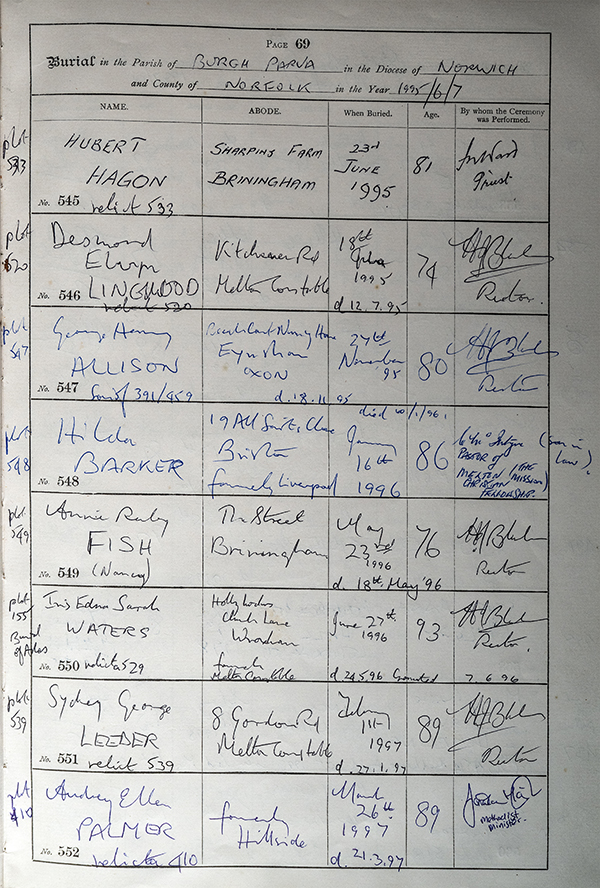 PAGE 69
Burial in the Parish of BURGH PARVA in the Diocese of NORWICH
and County of NORFOLK in the Year 1995/6/7
NAME. ABODE. When Buried. Age. By whom the Ceremony was Performed.
plot 533
HUBERT
HAGON
No. 545 relict 533
SHARPINS FARM
BRININGHAM
23rd
JUNE
1995
81
Priest
plot 520
Desmond
Elwyn
LINGWOOD
No. 546 relict 520
Kitchener Rd
Melton Constable
18th
July
1995
d. 12.7.95
74
Rector.
plot 547
George Henry
ALLISON
No. 547 Son of 391/459
Nursing Home
Eynsham
OXON
27th
November
95
d. 18.11.95
80
Rector
plot 548
Hilda
BARKER
No. 548
19 All Saints Close
formerly Liverpool
died 10/1/96.
January
16th
1996
86
(son in law)
PASTOR of
MELTON (THE MISSION)
CHRISTIAN
FELLOWSHIP.
plot 549
Annie Ruby
FISH
No. 549 (Nancy)
The Street
Briningham
May
23rd
1996
d. 18th May '96
76
Rector
plot 155
Burial of Ashes
Iris Edna Sarah
WATERS
No. 550 relict 529
Church Lane
formerly
Melton Constable
June 27th
1996
d. 24.5.96 Cremated 7.6.96
93
Rector.
plot 539
Sydney George
LEEDER
No. 551 relict 539
8 Gordon Rd
Melton Constable
February
1997
d. 27.1.97
89
Rector
plot 410
Audrey Ellen
PALMER
No. 552 relict 410
formerly
Hillside
March
26th
1997
d. 21.3.97
89
Methodist
Minister.